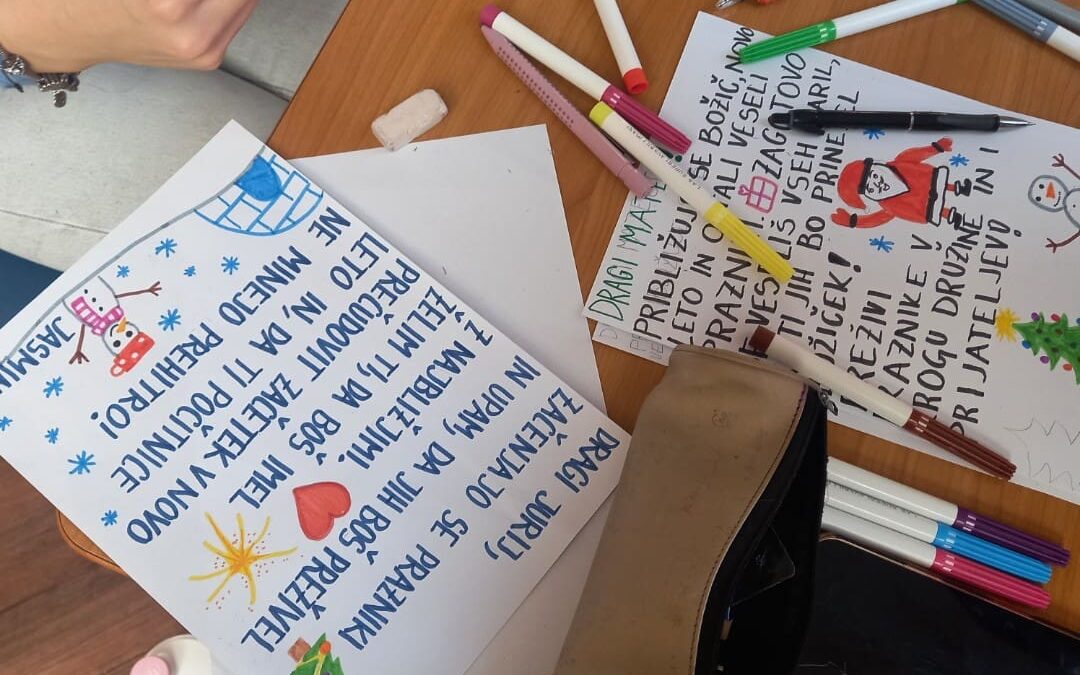 DRAGI JURIJ,
ZAČENJAJO SE PRAZNIKI
IN UPAM, DA JIH BOŠ PREŽIVEL
Z NAJBLIŽJIMI.
ŽELIM TI, DA BOŠ IMEL
PREČUDOVIT ZAČETEK V NOVO
LETO IN, DA TI POČITNICE
NE MINEJO PREHITRO!
JASMIN
DRAGI
SE BOŽIČ, NOVO
LETO IN VESELI
ZAGOTOVO
VESELIŠ VSEH
TI JIH BO
BOŽIČEK!
PREŽIVI
PRAZNIKE V
DRUŽINE IN
PRIJATELJEV!